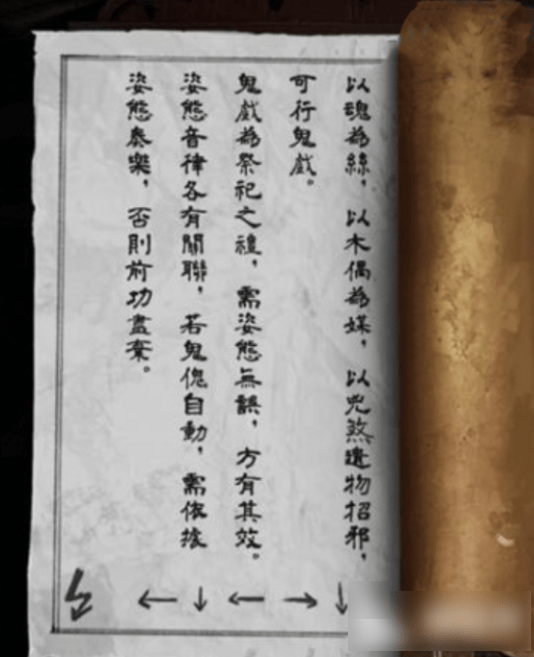 以魂為絲，以木偶為媒，以兇煞遺物招邪，
可行鬼戲。
鬼戲為祭祀之禮，需姿態無誤，方有其效。
姿態音律各有關聯，若鬼傀自動，需依據
姿態奏樂，否則前功盡棄。
↓→←↓←